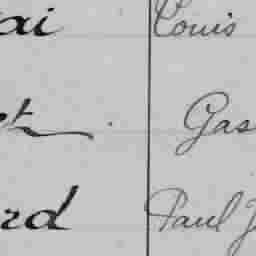 ai Louis
et Gas
rd Paul J